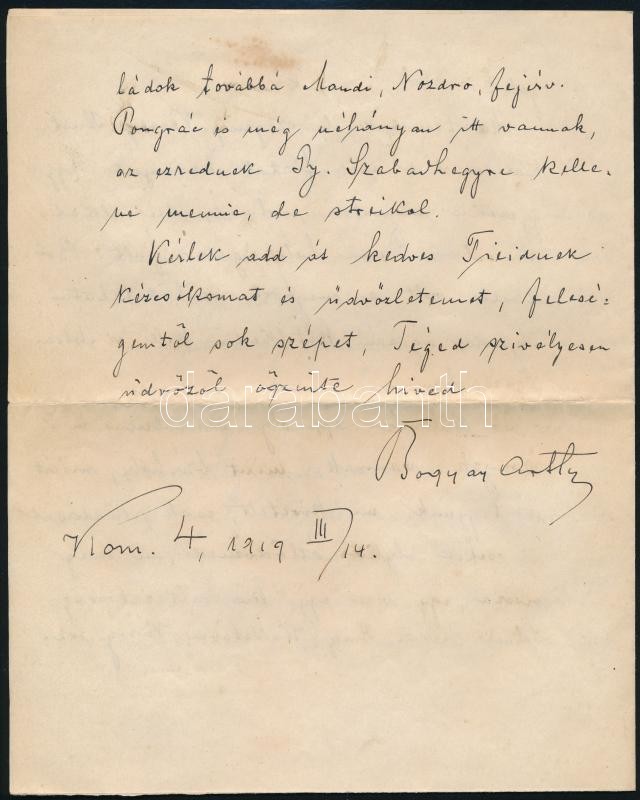 ládok továbbá Mandi, Nozdro, fejérv.
Pongrác és még néhányan itt vannak,
az ezrednek Gy. Szabadhegyre kelle-
ne mennie, de streikol.
Kérlek add át kedves Tieidnek
kézcsókomat és üdvözletemet, felesé-
gemtől sok szépet, Téged szivélyesen
üdvözöl őszinte hived
Bogyay
Kom. 4, 1919 III/14.
darabanth